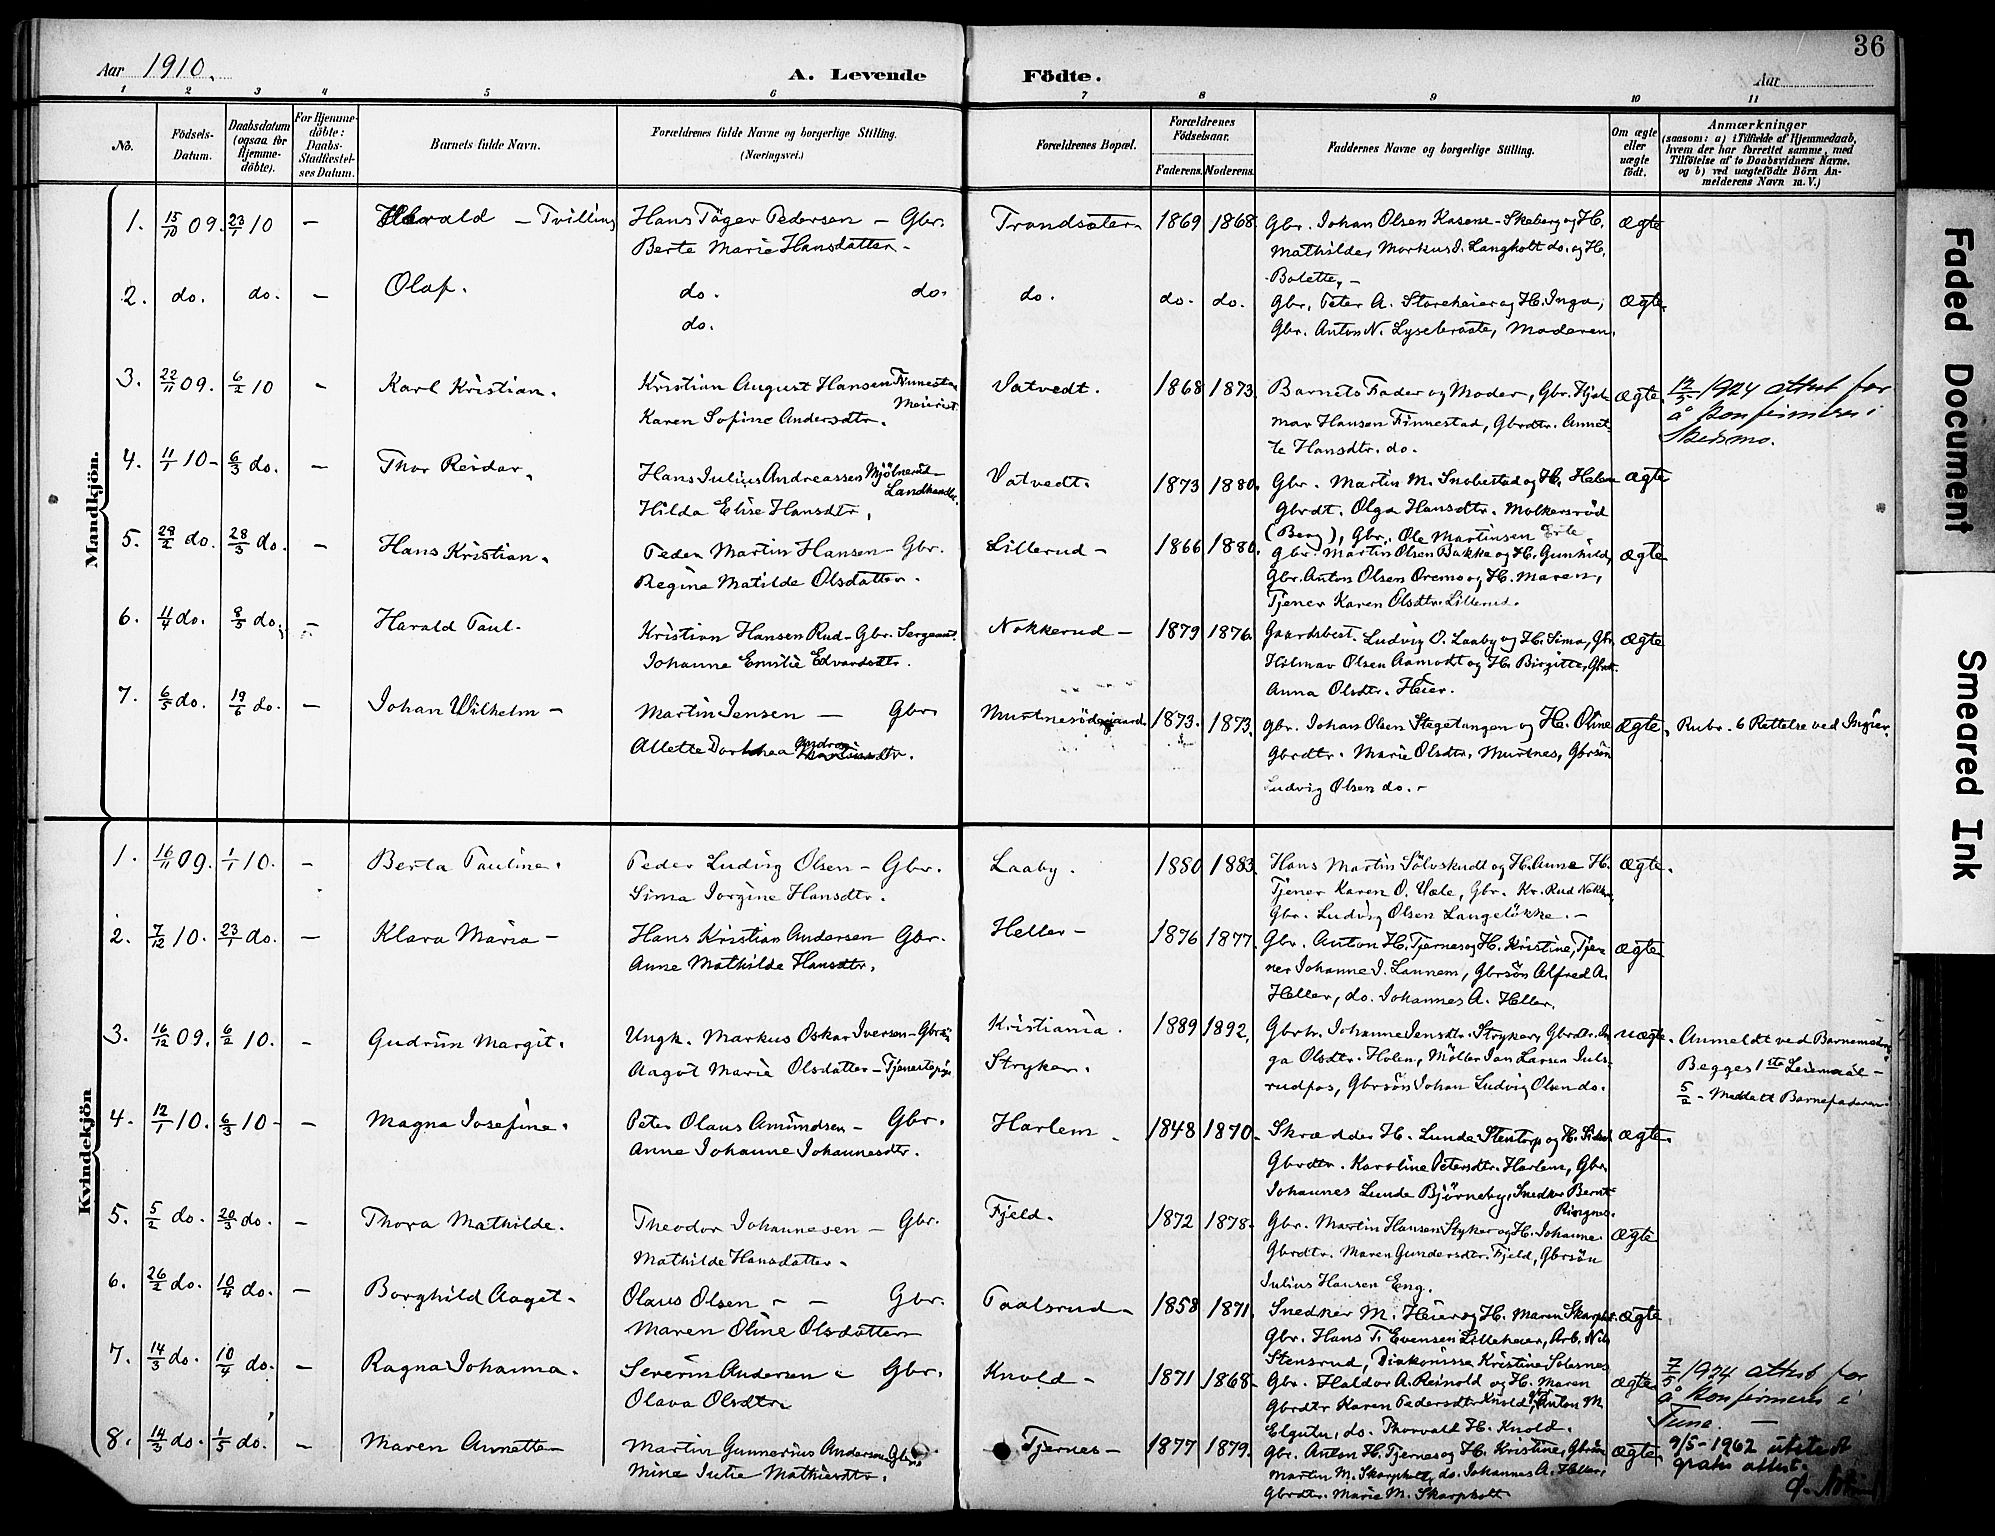 36
Aar 1910.
A. Levende Födte.
Aar
1 2 3 4 5 6 7 8 9 10 11
No.
Födsels-Datum.
Daabsdatum (ogsaa for Hjemme-döbte).
For Hjemme-döbte: Daabs-Stadfæstel-ses Datum.
Barnets fulde Navn.
Forældrenes fulde Navne og borgerlige Stilling. (Næringsvei.)
Forældrenes Bopæl.
Forældrenes Födselsaar.
Faderens. Moderens.
Faddernes Navne og borgerlige Stilling.
Om ægte eller uægte födt.
Anmærkninger
(saasom: a) i Tilfælde af Hjemmedaab, hvem der har forrettet samme, med Tilföielse af to Daabsvidners Navne. og b) ved uægtefödte Börn An-melderens Navn m. V.)
Mandkjön.
1. 15/10 09. 23/1 10 – Harald – Tvilling Hans Töger Pedersen – Gbr. Trandsæter 1869 1868. Gbr. Johan Olsen Kasene-Skeberg og H. Ægte
Berte Marie Hansdatter – Mathilde, Markus J. Langholt do. og H.
Bolette, –
2. do. do. – Olaf. do. do. do. do. do. Gbr. Peter A. Storeheier og H. Inga, Ægte.
do. Gbr. Anton N. Lysebraate, Moderen.
3. 22/11 09. 6/2 10 – Karl Kristian. Kristian August Hansen Finnestad Meierist Vatvedt. 1868 1873. Barnets Fader og Moder, Gbr. Hjal- Ægte. 12/5 1924 attest for
Karen Sofine Andersdtr. mar Hansen Finnestad, Gbrdtr. Annet- å konfirmeres i
te Hansdtr. do. Skedsmo.
4. 11/1 10 – 6/3 do. – Thor Reidar. Hans Julius Andreassen Mjölnerud Landhandler. Vatvedt. 1873 1880. Gbr. Martin M. Snobestad og H. Helene Ægte
Hilda Elise Hansdtr. Gbrdt. Olga Hansdtr. Molkersröd
(Berg), Gbr. Ole Martinsen Erte
5. 29/2 do. 28/3 do. – Hans Kristian. Peder Martin Hansen – Gbr. Lillerud – 1866 1880. Gbr. Martin Olsen Bakke og H. Gunhild, Ægte
Regine Matilde Olsdatter. Gbr. Anton Olsen Oremo og H. Maren,
Tjener Karen Olsdtr. Lillerud.
6. 4/4 do. 8/5 do. – Harald Paul. Kristian Hansen Rud – Gbr. Sergeant. Nokkerud – 1879 1876. Gaardsbest. Ludvig O. Laaby og H. Sima, Gbr. Ægte
Johanne Emilie Edvardsdtr. Hilmar Olsen Aamodt og H. Birgitte, Gbrdt.
Anna Olsdtr. Heier.
7. 6/5 do. 19/6 do. – Johan Wilhelm – Martin Jensen – Gbr. Murtnesödegaard 1873. 1873. Gbr. Johan Olsen Stegetangen og H. Oline Ægte. Rubr. 6 Rettelse ved Ingier.
Allette Dorthea dtr. Gbrdtr. Marie Olsdtr. Murtnes, Gbrsön
Ludvig Olsen do. –
Kvindekjön
1. 16/11 09. 1/1 10. – Berta Pauline. Peder Ludvig Olsen – Gbr. Laaby. 1880 1883. Hans Martin Sölvskudt og H. Anne H. Ægte.
Sima Jorgine Hansdtr. Tjener Karen O. Væle, Gbr. Kr. Rud Nokke
Gbr. Ludvig Olsen Langelökke. –
2. 7/12 10. 23/1 do. – Klara Maria – Hans Kristian Andersen Gbr. Heller – 1876 1877. Gbr. Anton H. Tjernes og H. Kristine, Tje- Ægte
Anne Mathilde Hansdtr. ner Johanne J. Lannem, Gbrsön Alfred A.
Heller, do. Johannes A. Heller.
3. 16/12 09. 6/2 10. – Gudrun Margit. Ungk. Markus Oskar Iversen – Gbrsön Kristiania. 1889 1892. Gbrh. Johanne Jensdtr. Stryker, Gbrdtr. In- uægte. Anmeldt ved Barnemoderen
Aagot Marie Olsdatter – Tjenestepige Stryker. ga Olsdtr. Holen, Möller Jan Larsen Juls- Begges 1ste Leiermaal –
rudfos, Gbrsön Johan Ludvig Olsen do. 5/2 – Meddelt Barnefaderen.
4. 12/1 10. 6/3 10 – Magna Josefine. Peter Olaus Amundsen – Gbr. Harlem – 1848 1870. Skrædder H. Lunde Stentorp og H. Ægte.
Anne Johanne Johannesdtr. Gbrdtr. Karoline Petersdtr. Harlem, Gbr.
Johannes Lunde Bjørneby, Snedker Bernt
Ringnes.
5. 5/2 do. 20/3 do. – Thora Mathilde. Theodor Johannesen – Gbr. Fjeld. 1872 1878. Gbr. Martin Hansen Stryker og H. Johanne Ægte
Mathilde Hansdatter. Gbrdtr. Maren Gundersdtr. Fjeld, Gbrsön
Julius Hansen Eng.
6. 26/2 do. 10/4 do. – Borghild Aagot. Olaus Olsen – – Gbr. Paalsrud – 1858 1871. Snedker M. Heier og H. Maren Skarpholt Ægte
Maren Oline Olsdatter Gbr. Hans T. Evensen Lilleheier, Arb. Nils
Stensrud, Diakonisse Kristine Solesnes
7. 14/3 do. 10/4 do. – Ragna Johanna. Severin Andersen – Gbr. Knold – 1871 1868. Gbr. Haldor A. Reinold og H. Maren Ægte 7/5 1924 attest for
Olava Olsdtr. Gbrdtr Karen Pedersdtr Knold, Gbr. Anton M. å konfirmeres i
Elgutu, do. Thorvald H. Knold. Tune. –
8. 14/3 do. 1/5 do. – Maren Annette Martin Gunnerius Andersen Gbr. Tjernes – 1877 1879. Gbr. Anton H. Tjernes og H. Kristine, Gbrsön Ægte. 9/5 – 1962 utstedt
Mine Julie Mathisdtr. Martin M. Skarpholt, do. Johannes A. Heller, gratis attest.
Gbrdtr. Marie M. Skarpholt.
Faded Document
Smeared Ink